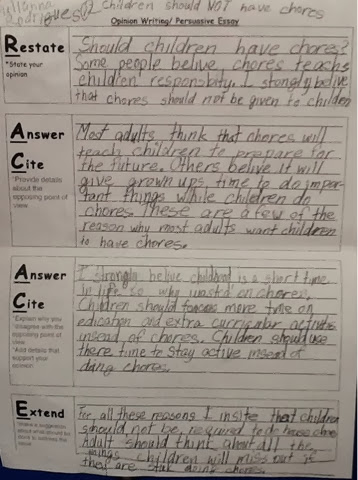 children should NOT have chores
Opinion Writing/ Persuasive Essay
Restate
*State your
opinion
Should children have chores?
Some people belive chores teachs
children responsbity. I stongly belive
that chores should not be given to children
Answer
Cite
*Provide details
about the
opposing point of
view
Most adults, think that chores will
teach children to prepare for
the future. Others belive it will
give grown ups time to do impor-
tant things while children do
chores. These are a few of the
reason why most adults want children
to have chores.
Answer
Cite
*Explain why you
disagree with the
opposing point of
view
*Add details that
support your
opinion
I strongln belive childhood is a short time
in life so why wast'd on chores.
Children should foncoes more time on
edication and extra curricular activities
insead of chores. Children should use
there time to stay active insead of
doing chores.
Extend
*Make a suggestion
about what should be
done to address the
issue
For, all these reasons I insite that children
should not be, required to do house chores
Adult should think about all the
things children will miss out if
they are stuk doing chores.